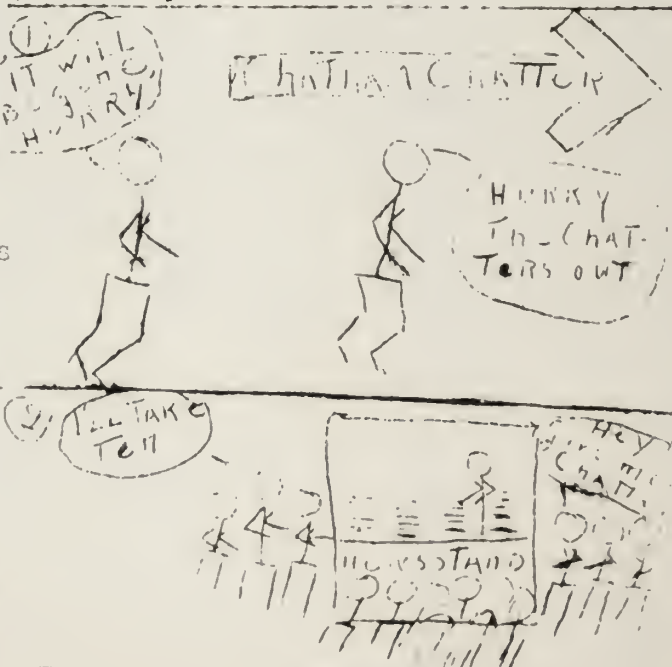 ①
IT WILL
Be gone
HURRY
CHATHAM CHATTER
HURRY
The CHAT-
TeRS OUT
S
2.
I'LL TAKe
TeN
Hey
NEWSSTAND